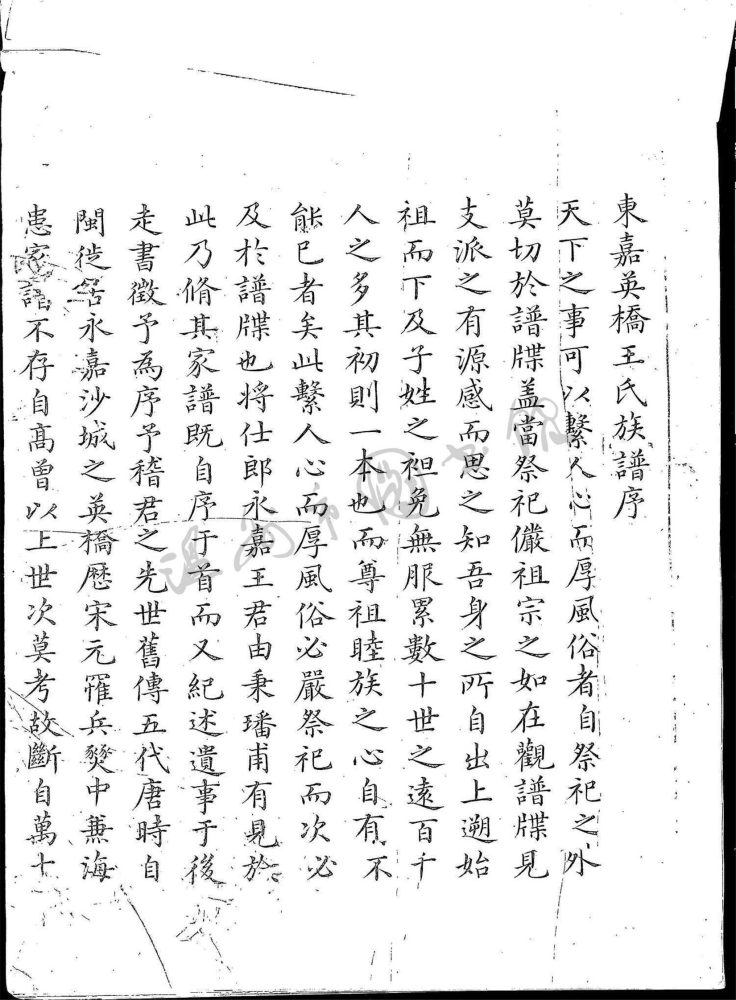 東嘉英橋王氏族譜序
天下之事可以繫人心而厚風俗者自祭祀之外
莫切於譜牒盖當祭祀儼祖宗之如在觀譜牒見
支派之有源感而思之知吾身之所自出上遡始
祖而下及子姓之袒免無服累數十世之遠百千
人之多其初則一本也而尊祖睦族之心自有不
能已者矣此繫人心而厚風俗必嚴祭祀而次必
及於譜牒也將仕郎永嘉王君由秉璠甫有見於
此乃脩其家譜既自序于首而又紀述遺事于後
走書徵予為序予稽君之先世舊傳五代唐時自
閩徙居永嘉沙城之英橋歷宋元罹兵燹中兼海
患家譜不存自高曾以上世次莫考故斷自萬十
溫州市圖書館